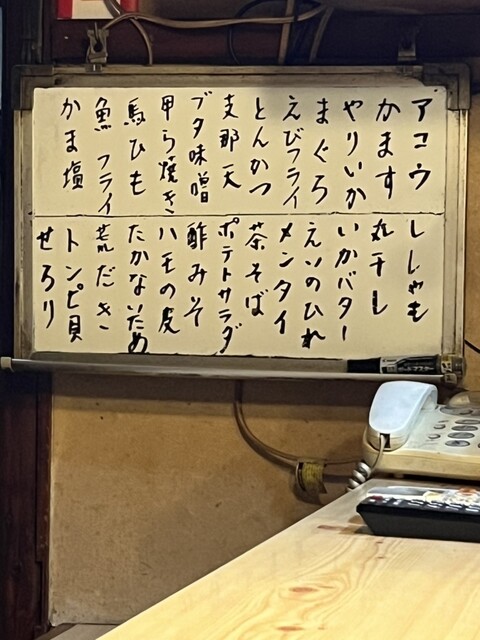 アコウ
かます
やりいか
まぐろ
えびフライ
とんかつ
支那天
ブタ味噌
甲ら焼き
馬ひも
魚フライ
かま塩
ししゃも
丸干し
いかバター
えいのひれ
メンタイ
茶そば
ポテトサラダ
酢みそ
八王の皮
たかないため
荒だき
トンビ貝
せろり